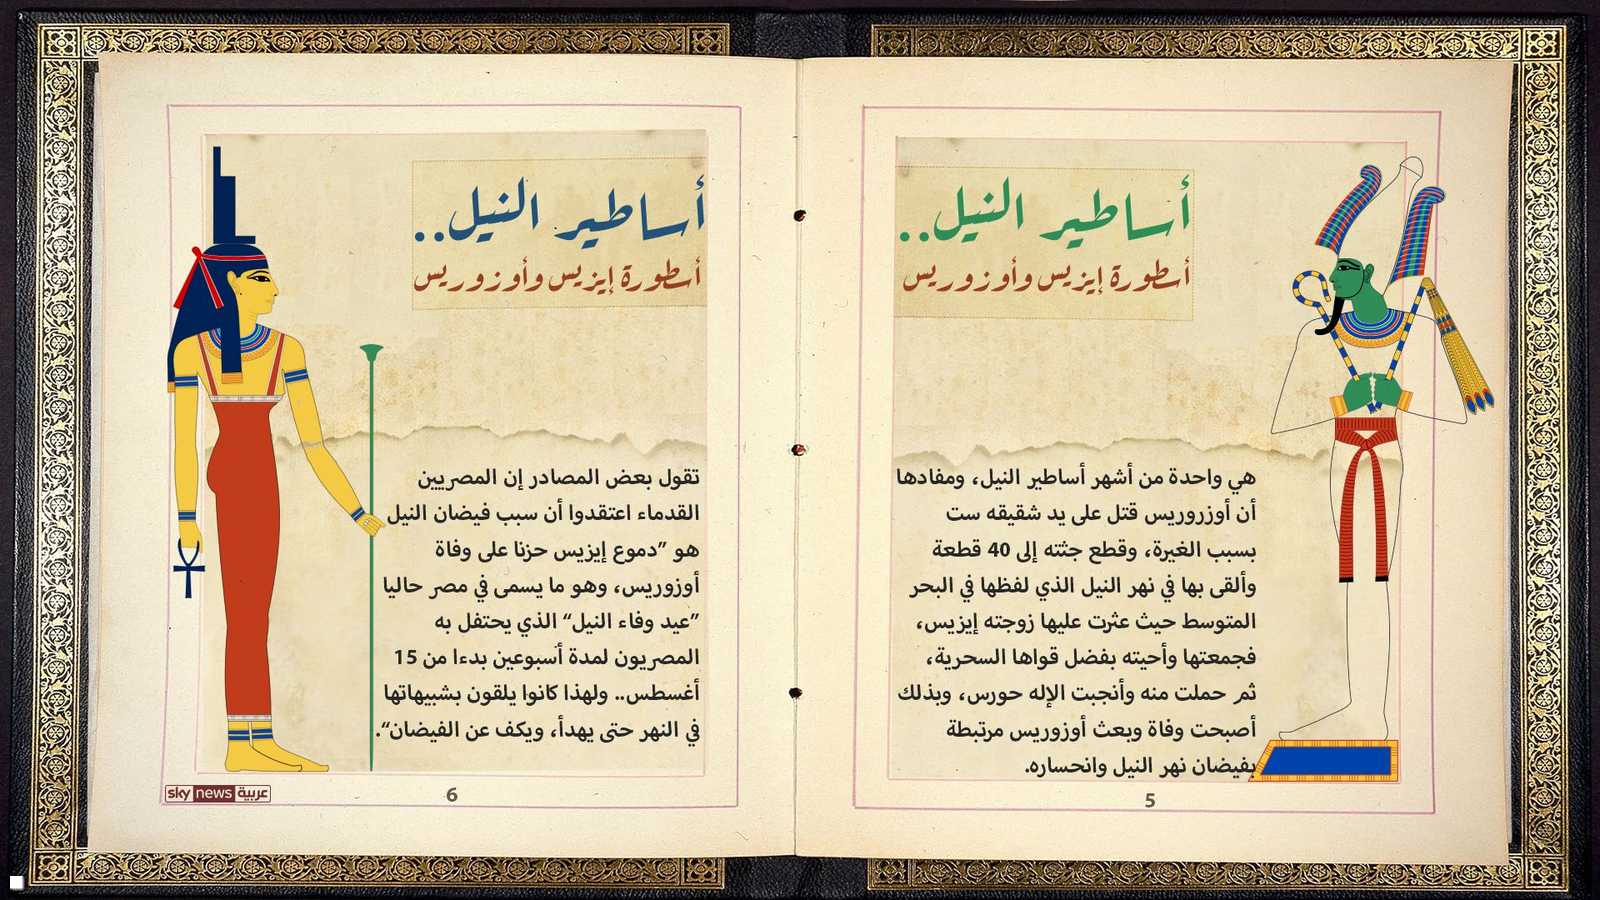 أساطير النيل..
أسطورة إيزيس وأوزوريس
هي واحدة من أشهر أساطير النيل، ومفادها
أن أوزروريس قتل على يد شقيقه ست
بسبب الغيرة، وقطع جثته إلى 40 قطعة
وألقى بها في نهر النيل الذي لفظها في البحر
المتوسط حيث عثرت عليها زوجته إيزيس،
فجمعتها وأحيته بفضل قواها السحرية،
ثم حملت منه وأنجبت الإله حورس، وبذلك
أصبحت وفاة وبعث أوزوريس مرتبطة
بفيضان نهر النيل وانحساره.
5
أساطير النيل..
أسطورة إيزيس وأوزوريس
تقول بعض المصادر إن المصريين
القدماء اعتقدوا أن سبب فيضان النيل
هو ”دموع إيزيس حزنا على وفاة
أوزوريس، وهو ما يسمى في مصر حاليا
”عيد وفاء النيل“ الذي يحتفل به
المصريون لمدة أسبوعين بدءا من 15
أغسطس.. ولهذا كانوا يلقون بشبيهاتها
في النهر حتى يهدأ، ويكف عن الفيضان“.
6
sky news عربية